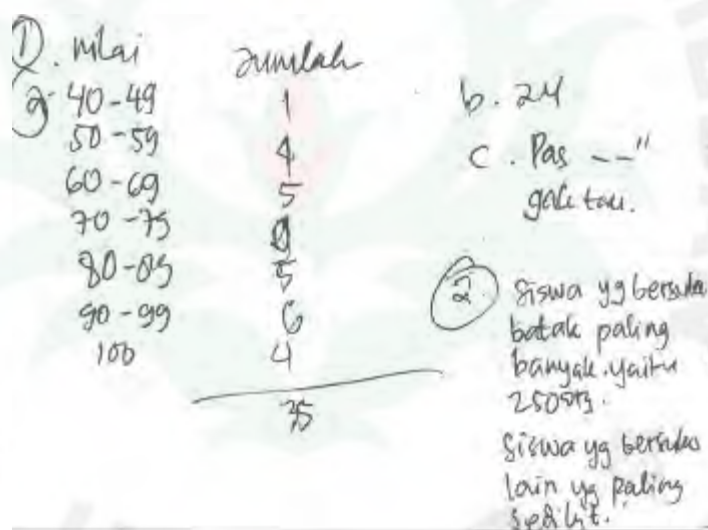 ①. nilai Jumlah
a. 40-49 1
50-59 4
60-69 5
70-79
80-89 5
90-99 6
100 4
35
b. 24
c. Pas --"
gak tau.
② siswa yg bersuku
batak paling
banyak. yaitu
siswa yg bersuku
lain yg paling
sedikit.